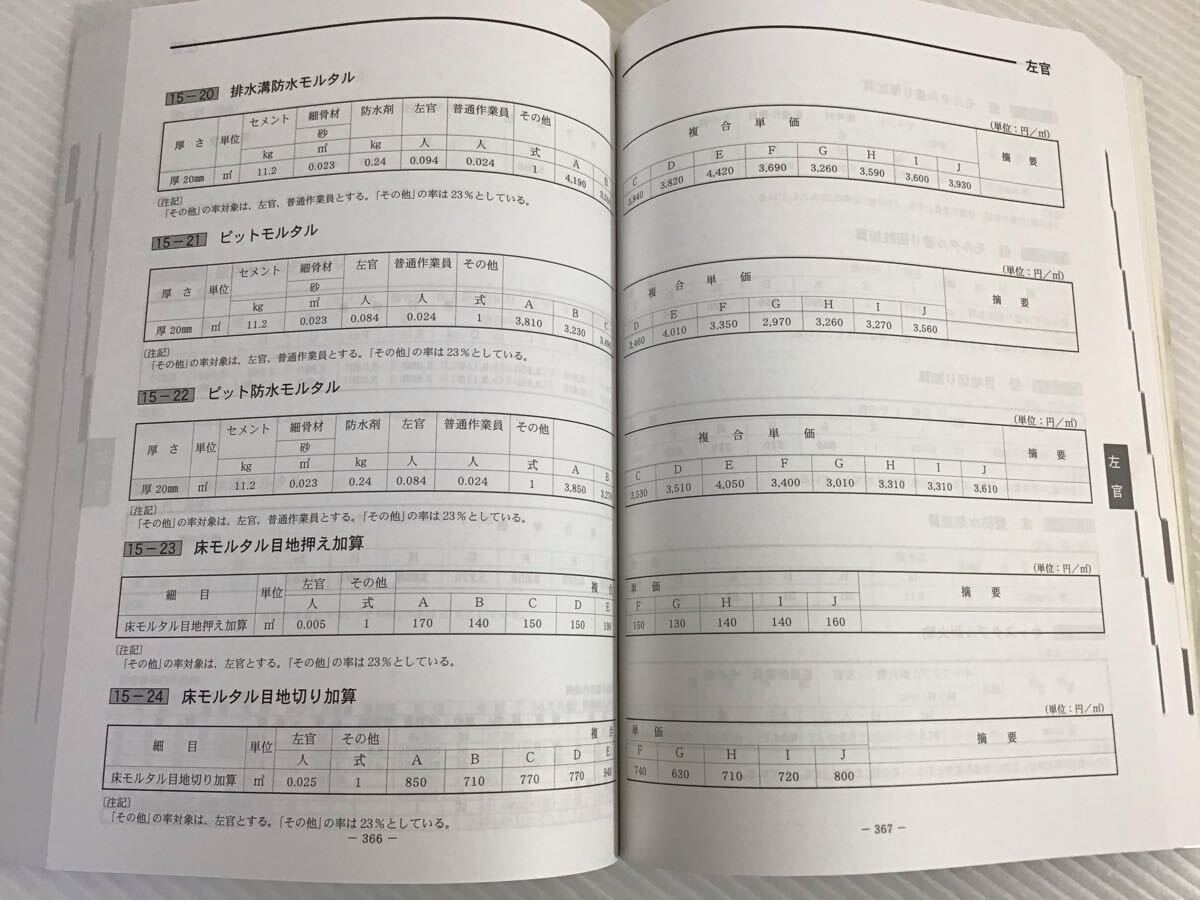 15-20 排水溝防水モルタル
厚さ 単位 セメント 細骨材 防水剤 左官 普通作業員 その他
砂
kg ㎥ kg 人 人 式 A B
厚20㎜ ㎡ 11.2 0.023 0.24 0.094 0.024 1 4,190
〔注記〕
「その他」の率対象は、左官、普通作業員とする。「その他」の率は23%としている。
15-21 ピットモルタル
厚さ 単位 セメント 細骨材 左官 普通作業員 その他
砂
kg ㎥ 人 人 式 A B C
厚20㎜ ㎡ 11.2 0.023 0.084 0.024 1 3,810 3,230
〔注記〕
「その他」の率対象は、左官、普通作業員とする。「その他」の率は23%としている。
15-22 ピット防水モルタル
厚さ 単位 セメント 細骨材 防水剤 左官 普通作業員 その他
砂
kg ㎥ kg 人 人 式 A B
厚20㎜ ㎡ 11.2 0.023 0.24 0.084 0.024 1 3,850 3,270
〔注記〕
「その他」の率対象は、左官、普通作業員とする。「その他」の率は23%としている。
15-23 床モルタル目地押え加算
細目 単位 左官 その他 複合
人 式 A B C D E
床モルタル目地押え加算 ㎡ 0.005 1 170 140 150 150 190
〔注記〕
「その他」の率対象は、左官とする。「その他」の率は23%としている。
15-24 床モルタル目地切り加算
細目 単位 左官 その他 複合
人 式 A B C D E
床モルタル目地切り加算 ㎡ 0.025 1 850 710 770 770 940
〔注記〕
「その他」の率対象は、左官とする。「その他」の率は23%としている。
- 366 -
左官
(単位:円/㎡)
複合単価 摘要
C D E F G H I J
3,840 3,820 4,420 3,690 3,260 3,590 3,600 3,930
(単位:円/㎡)
複合単価 摘要
D E F G H I J
3,460 4,010 3,350 2,970 3,260 3,270 3,560
(単位:円/㎡)
複合単価 摘要
C D E F G H I J
3,530 3,510 4,050 3,400 3,010 3,310 3,310 3,610
左官
(単位:円/㎡)
単価 摘要
F G H I J
150 130 140 140 160
(単位:円/㎡)
単価 摘要
F G H I J
740 630 710 720 800
- 367 -